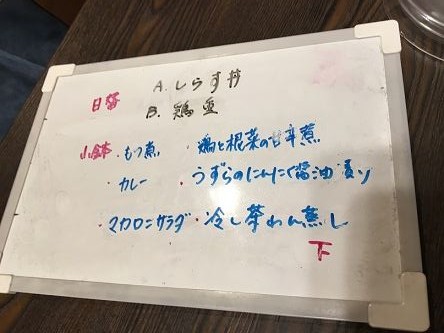 日替 A. しらす丼
B. 鶏重
小鉢 ・もつ煮 ・鶏と根菜の甘辛煮
・カレー ・うずらのにんにく醤油漬け
・マカロニサラダ ・冷し茶わん蒸し
下